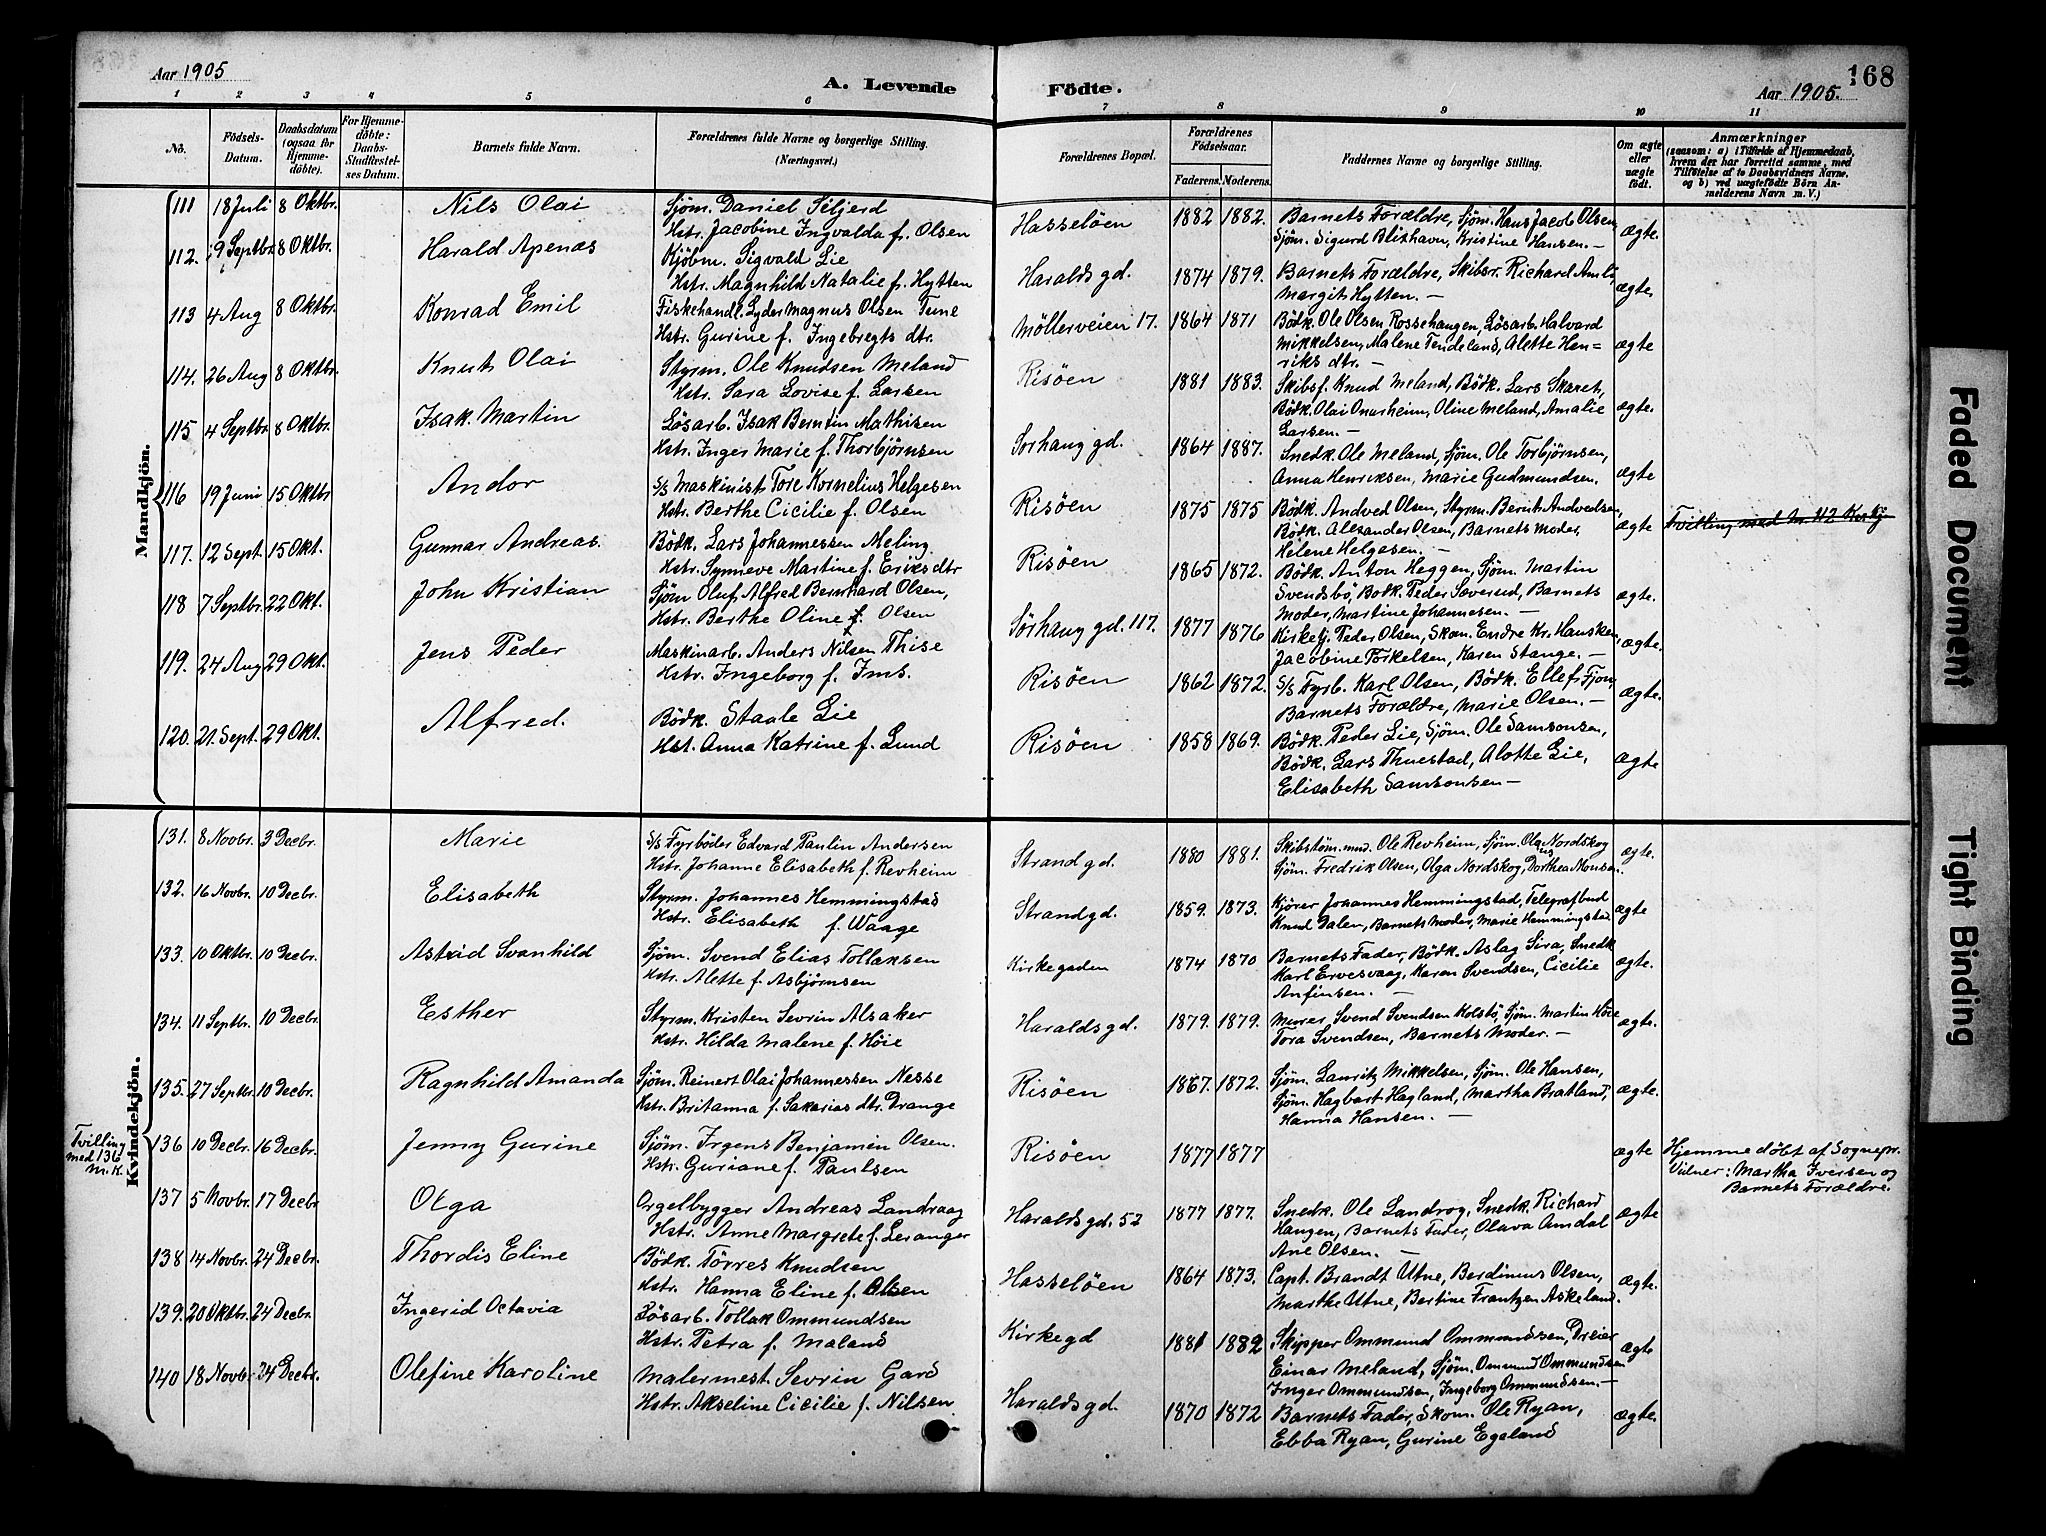 Aar 1905
A. Levende
Födte.
Aar 1905.
168
1 2 3 4 5 6 7 8 9 10 11
No.
Födsels-
Datum.
Daabsdatum
(ogsaa for
Hjemme-
døbte).
For Hjemme-
døbte:
Daabs-
Stadfæstel-
ses Datum.
Barnets fulde Navn.
Forældrenes fulde Navne og borgerlige Stilling.
(Næringsvei.)
Forældrenes Bopæl.
Forældrenes
Födselsaar.
Faderens. Moderens.
Faddernes Navne og borgerlige Stilling.
Om ægte
eller
uægte
født.
Anmærkninger
(saasom: a) i Tilfælde af Hjemmedaab,
hvem der har forrettet samme, med
Tilføielse af to Daabsvidners Navne.
og b) ved uægtefødte Börn An-
melderens Navn m. V.)
Mandkjön.
111 18 Juli 8 Oktbr. Nils Olai Sjøm. Daniel Seljerd
Hstr. Jacobine Ingvalda f. Olsen
Hasseløen 1882 1882. Barnets Forældre, Sjøm. Hans Jacob Olsen,
Sjøm. Sigurd Blixhavn, Kristine Hansen. — ægte.
112. 9 Septbr. 8 Oktbr. Harald Apenæs Kjøbm. Sigvald Lie
Hstr. Magnhild Natalie f. Hytten
Haralds gd. 1874 1879. Barnets Forældre, Skibsr. Richard Amli,
Margit Hytten. — ægte
113 4 Aug 8 Oktbr. Konrad Emil Fiskehandl. Lyder Magnus Olsen Tune
Hstr. Gurine f. Ingebregts dtr.
Møllerveien 17. 1864 1871 Bødk. Ole Olsen Rossehaugen, Løsarb. Halvard
Mikkelsen, Malene Tendeland, Alette Hen=
riks dtr. — ægte
114. 26 Aug 8 Oktbr. Knut Olai Styrm. Ole Knudsen Meland
Hstr. Sara Lovise f. Larsen
Risøen 1881 1883. Skibsf. Knud Meland, Bødk. Lars Skaret,
Bødk. Olai Onarheim, Oline Meland, Amalie
Larsen. — ægte.
115 4 Septbr. 8 Oktbr. Isak Martin Løsarb. Isak Berntin Mathisen
Hstr. Inger Marie f. Thorbjørnsen
Sørhaug gd. 1864 1887. Snedk. Ole Meland, Sjøm. Ole Torbjørnsen,
Anna Henriksen, Marie Gudmundsen. ægte
116 19 Juni 15 Oktbr Andor S/S Maskinist Tore Kornelius Helgesen
Hstr. Berthe Cicilie f. Olsen
Risøen 1875 1875 Bødk. Andved Olsen, Styrm. Bernt Andvedsen,
Bødk. Alexander Olsen, Barnets Moder,
Helene Helgesen. — ægte Tvilling med N. 112 Kvkj
117. 12 Sept. 15 Okt. Gunnar Andreas. Bødk. Lars Johannessen Meling.
Hstr. Synneve Martine f. Eriks dtr
Risøen 1865 1872. Bødk. Anton Heggen, Sjøm. Martin
Svendsbø, Bødk. Peder Sæverud, Barnets
Moder, Martine Johannesen. — ægte.
118 7 Septbr. 22 Okt. John Kristian Sjøm Oluf Alfred Bernhard Olsen,
Hstr. Berthe Oline f. Olsen
Sørhaug gd. 117. 1877 1876 Kirketj. Peder Olsen, Skom. Endre Kr. Hansken,
Jacobine Torkelsen, Karen Stange. — ægte.
119. 24 Aug 29 Okt. Jens Peder Maskinarb. Anders Nilsen Thise
Hstr. Ingeborg f. Ims.
Risøen 1862 1872. S/S Fyrb. Karl Olsen, Bødk. Ellef Fjon,
Barnets Forældre, Marie Olsen. — ægte.
120. 21. Sept. 29 Okt. Alfred. Bødk. Staale Lie
Hst. Anna Katrine f. Lund
Risøen 1858 1869. Bødk. Peder Lie, Sjøm. Ole Samsonsen,
Bødk. Lars Thuestad, Alotte Lie,
Elisabeth Samsonsen — ægte
Kvindekjön.
131. 8 Novbr. 3 Decbr. Marie S/S Fyrbøder Edvard Paulin Andersen
Hstr. Johanne Elisabeth f. Revheim
Strand gd. 1880 1881. Skibstøm. md. Ole Revheim, Sjøm. Olaus Nordskog
Sjøm. Fredrik Olsen, Olga Nordskog, Dorthea Monsen. ægte.
132. 16 Novbr. 10 Decbr. Elisabeth Styrm. Johannes Hemmingstad
Hstr. Elisabeth f. Waage
Strand gd. 1859. 1873. Kjører Johannes Hemmingstad, Telegrafbud
Knud Dalen, Barnets Moder, Marie Hemmingstad ægte
133. 10 Oktbr. 10 Decbr. Astrid Svanhild Sjøm. Svend Elias Tollaksen
Hstr. Alette f. Asbjørnsen
Kirkegaden 1874 1870 Barnets Fader, Bødk. Aslag Sira, Snedk
Karl Ervesvaag, Karen Svendsen, Cicilie
Anfinsen. — ægte.
134. 11 Septbr. 10 Decbr. Esther Styrm. Kristen Sevrin Alsaker
Hstr. Hilda Malene f. Høie
Haralds gd. 1879. 1879. Murer, Svend Svendsen Kolstø, Sjøm. Martin Høie
Tora Svendsen, Barnets Moder. — ægte.
135. 27 Septbr. 10 Decbr. Ragnhild Amanda Sjøm. Reinert Olai Johannessen Nesse
Hstr. Britanna f. Sakarias dtr. Drange
Risøen 1867. 1872. Sjøm. Lauritz Mikkelsen, Sjøm. Ole Hansen,
Sjøm. Hagbart Hagland, Martha Bratland,
Hanna Hansen. — ægte.
Tvilling
med 136
M. K.
136 10 Decbr. 16 Decbr. Jenny Gurine Sjøm. Irgens Benjamin Olsen.
Hstr. Guriane f. Paulsen
Risøen 1877 1877 ægte Hjemmedøbt af Sognepr.
Vidner: Martha Iversen og
Barnets Forældre.
137 5 Novbr. 17 Decbr Olga Orgelbygger Andreas Landraag
Hstr. Anne Margrete f. Leranger
Haralds gd. 52 1877 1877. Snedk. Ole Landrog, Snedk. Richard
Haugen, Barnets Fader, Olava Amdal
Ane Olsen. — ægte
138 14 Novbr. 24 Decbr. Thordis Eline Bødk. Tørres Knudsen
Hstr. Hanna Eline f. Olsen
Hasseløen 1864 1873. Capt. Brandt Utne, Berdinus Olsen,
Marthe Utne, Bertine Frantzen Askeland. ægte.
139. 20 Oktbr. 24 Decbr. Ingerid Octavia Løsarb. Tollak Ommundsen
Hstr. Petra f. Maland
Kirke gd 1881 1882 Skipper Ommund Ommundsen, Dreier
Einar Meland, Sjøm. Ommund Ommundsen
Inger Ommundsen, Ingeborg Ommundsen. — ægte
140 18 Novbr. 24 Decbr. Olefine Karoline Malermest. Sevrin Gard
Hstr. Akseline Cicilie f. Nilsen
Haralds gd. 1870 1872 Barnets Fader, Skom. Ole Ryan,
Ebba Ryan, Gurine Egeland ægte.
Faded Document
Tight Binding